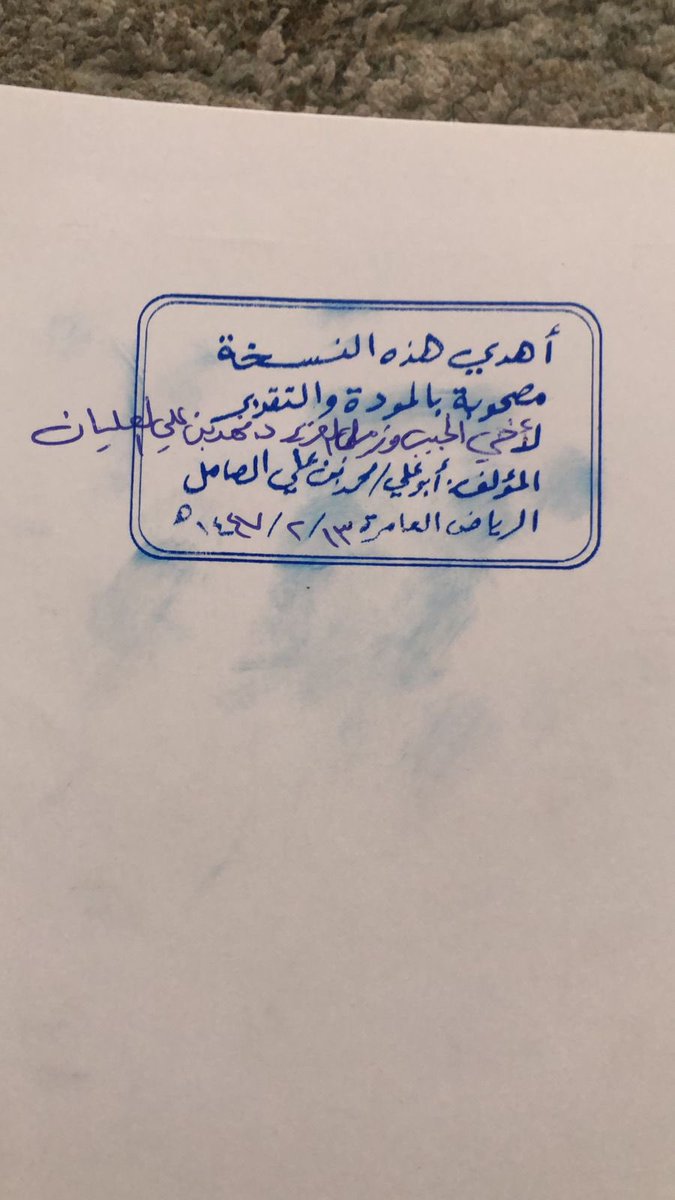 أهدي هذه النسخة
مصحوبة بالمودة والتقدير
لأخي الحبيب وزميلي العزيز د. فهد بن علي العليان
المؤلف: أبو علي/محمد بن علي الصامل
الرياض العامرة ١٣/٢/١٤٤٧هـ